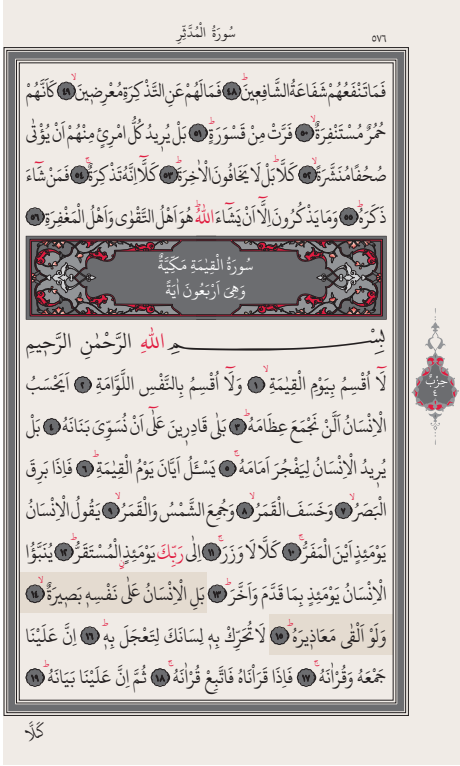 سُورَةُ الْمُدَّثِّرِ
٥٧٦
فَمَا تَنْفَعُهُمْ شَفَاعَةُ الشَّافِعِينَۜ ﴿٤٨﴾ فَمَا لَهُمْ عَنِ التَّذْكِرَةِ مُعْرِضِينَۙ ﴿٤٩﴾ كَاَنَّهُمْ
حُمُرٌ مُسْتَنْفِرَةٌۙ ﴿٥٠﴾ فَرَّتْ مِنْ قَسْوَرَةٍۜ ﴿٥١﴾ بَلْ يُرِيدُ كُلُّ امْرِئٍ مِنْهُمْ اَنْ يُؤْتٰى
صُحُفًا مُنَشَّرَةًۙ ﴿٥٢﴾ كَلَّاۜ بَلْ لَا يَخَافُونَ الْاٰخِرَةَۜ ﴿٥٣﴾ كَلَّٓا اِنَّهُ تَذْكِرَةٌۚ ﴿٥٤﴾ فَمَنْ شَٓاءَ
ذَكَرَهُۜ ﴿٥٥﴾ وَمَا يَذْكُرُونَ اِلَّٓا اَنْ يَشَٓاءَ اللّٰهُۜ هُوَ اَهْلُ التَّقْوٰى وَاَهْلُ الْمَغْفِرَةِ ﴿٥٦﴾
سُورَةُ الْقِيٰمَةِ مَكِّيَّةٌ
وَهِيَ اَرْبَعُونَ اٰيَةً
بِسْمِ اللّٰهِ الرَّحْمٰنِ الرَّحِيمِ
لَٓا اُقْسِمُ بِيَوْمِ الْقِيٰمَةِۙ ﴿١﴾ وَلَٓا اُقْسِمُ بِالنَّفْسِ اللَّوَّامَةِ ﴿٢﴾ اَيَحْسَبُ
الْاِنْسَانُ اَلَّنْ نَجْمَعَ عِظَامَهُۜ ﴿٣﴾ بَلٰى قَادِرِينَ عَلٰٓى اَنْ نُسَوِّيَ بَنَانَهُ ﴿٤﴾ بَلْ
يُرِيدُ الْاِنْسَانُ لِيَفْجُرَ اَمَامَهُۚ ﴿٥﴾ يَسْـَٔلُ اَيَّانَ يَوْمُ الْقِيٰمَةِۜ ﴿٦﴾ فَاِذَا بَرِقَ
الْبَصَرُۙ ﴿٧﴾ وَخَسَفَ الْقَمَرُۙ ﴿٨﴾ وَجُمِعَ الشَّمْسُ وَالْقَمَرُۙ ﴿٩﴾ يَقُولُ الْاِنْسَانُ
يَوْمَئِذٍ اَيْنَ الْمَفَرُّۚ ﴿١٠﴾ كَلَّا لَا وَزَرَۜ ﴿١١﴾ اِلٰى رَبِّكَ يَوْمَئِذٍ الْمُسْتَقَرُّۜ ﴿١٢﴾ يُنَبَّؤُا
الْاِنْسَانُ يَوْمَئِذٍ بِمَا قَدَّمَ وَاَخَّرَۜ ﴿١٣﴾ بَلِ الْاِنْسَانُ عَلٰى نَفْسِهِ بَصِيرَةٌۙ ﴿١٤﴾
وَلَوْ اَلْقٰى مَعَاذِيرَهُۜ ﴿١٥﴾ لَا تُحَرِّكْ بِهِ لِسَانَكَ لِتَعْجَلَ بِهِۜ ﴿١٦﴾ اِنَّ عَلَيْنَا
جَمْعَهُ وَقُرْاٰنَهُۚ ﴿١٧﴾ فَاِذَا قَرَأْنَاهُ فَاتَّبِعْ قُرْاٰنَهُۚ ﴿١٨﴾ ثُمَّ اِنَّ عَلَيْنَا بَيَانَهُۜ ﴿١٩﴾
كَلَّا
حِزْبٌ
٤